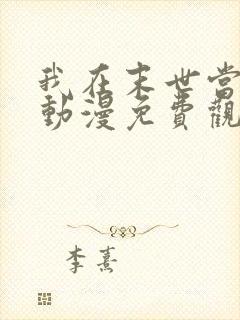 我在末世當
動漫免費觀
李熹